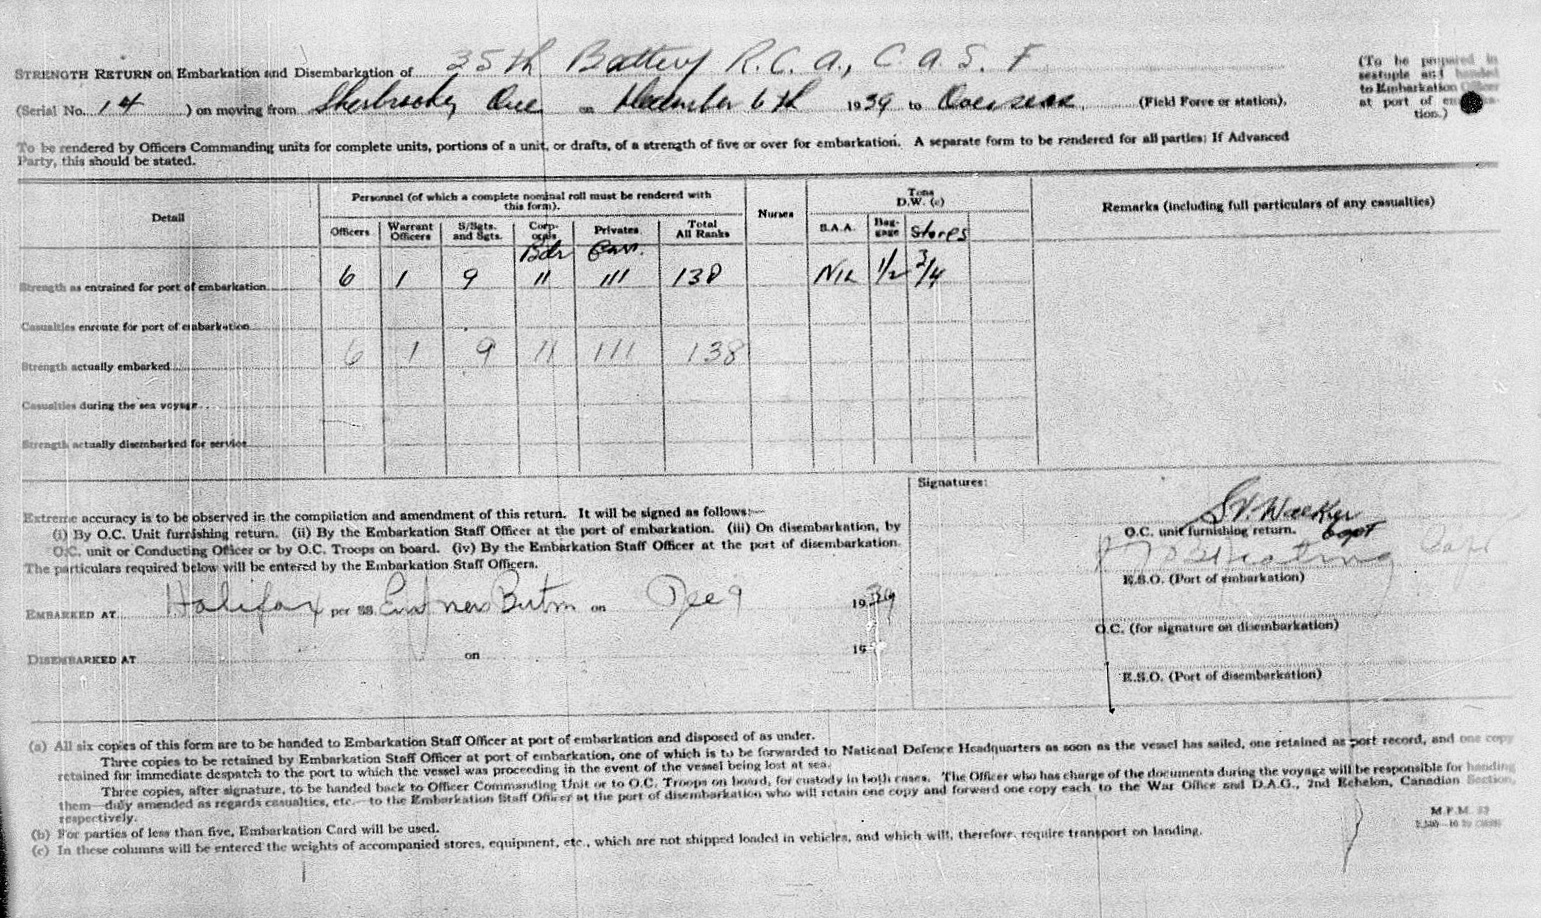 STRENGTH RETURN on Embarkation and Disembarkation of 35th Battery R.C.A., C.A.S.F
(To be prepared in
sextuple and handed
to Embarkation Officer
at port of embarkation.)
(Serial No. 14 ) on moving from Sherbrooke, Que on December 6th 1939 to Overseas (Field Force or station).
To be rendered by Officers Commanding units for complete units, portions of a unit, or drafts, of a strength of five or over for embarkation. A separate form to be rendered for all parties: If Advanced
Party, this should be stated.
Detail
Personnel (of which a complete nominal roll must be rendered with
this form).
Nurses
Tons
D.W. (c)
Remarks (including full particulars of any casualties)
Officers Warrant Officers S/Sgts. and Sgts. Corporals Privates Total All Ranks S.A.A. Baggage Stores
Bdr Gnr.
Strength as entrained for port of embarkation 6 1 9 11 111 138 NIL 1/2 3/4
Casualties enroute for port of embarkation
Strength actually embarked 6 1 9 11 111 138
Casualties during the sea voyage
Strength actually disembarked for service
Signatures:
Extreme accuracy is to be observed in the compilation and amendment of this return. It will be signed as follows:—
(i) By O.C. Unit furnishing return. (ii) By the Embarkation Staff Officer at the port of embarkation. (iii) On disembarkation, by
O.C. unit or Conducting Officer or by O.C. Troops on board. (iv) By the Embarkation Staff Officer at the port of disembarkation.
The particulars required below will be entered by the Embarkation Staff Officers.
Walker
O.C. unit furnishing return. Capt
Keating Capt
E.S.O. (Port of embarkation)
EMBARKED AT Halifax per SS. on Dec 9 1939
O.C. (for signature on disembarkation)
DISEMBARKED AT on 19
E.S.O. (Port of disembarkation)
(a) All six copies of this form are to be handed to Embarkation Staff Officer at port of embarkation and disposed of as under.
Three copies to be retained by Embarkation Staff Officer at port of embarkation, one of which is to be forwarded to National Defence Headquarters as soon as the vessel has sailed, one retained as port record, and one copy
retained for immediate despatch to the port to which the vessel was proceeding in the event of the vessel being lost at sea.
Three copies, after signature, to be handed back to Officer Commanding Unit or to O.C. Troops on board, for custody in both cases. The Officer who has charge of the documents during the voyage will be responsible for handing
them—duly amended as regards casualties, etc.—to the Embarkation Staff Officer at the port of disembarkation who will retain one copy and forward one copy each to the War Office and D.A.G., 2nd Echelon, Canadian Section,
respectively.
(b) For parties of less than five, Embarkation Card will be used.
(c) In these columns will be entered the weights of accompanied stores, equipment, etc., which are not shipped loaded in vehicles, and which will, therefore, require transport on landing.
M.F.M.